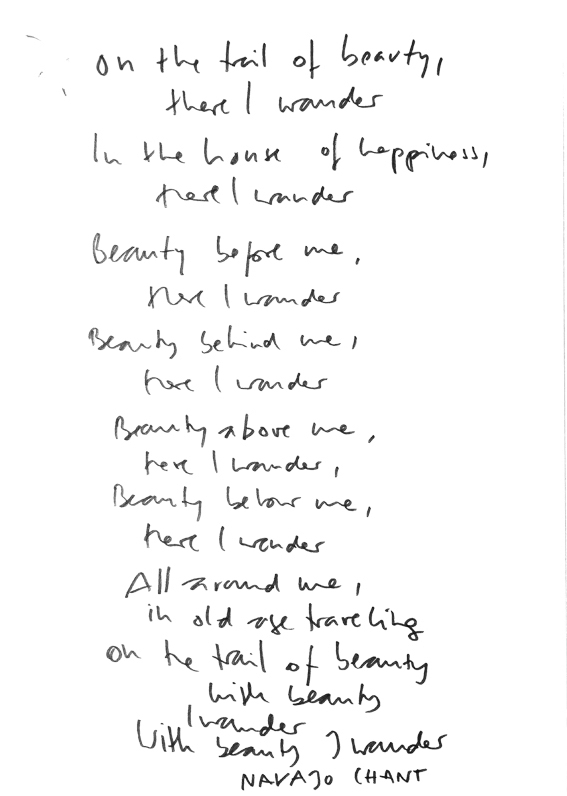 on the trail of beauty,
there I wander
In the house of happiness,
there I wander
Beauty before me,
there I wander
Beauty behind me,
there I wander
Beauty above me,
there I wander,
Beauty below me,
there I wander
All around me,
in old age traveling
on the trail of beauty
with beauty
I wander
With beauty I wander
NAVAJO CHANT